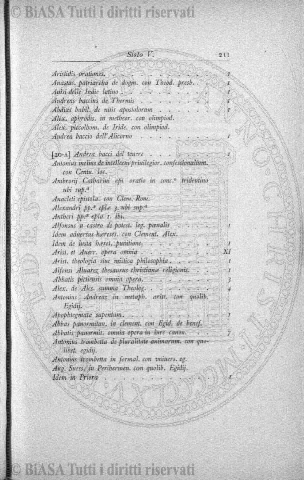 © BIASA Tutti i diritti riservati
Sisto V. 211
Aristidis orationes. 1
Anastas. patriarcha de dogm. con Thod. presb. 1
Aulei delle Indie latino 1
Andreas baccius de Thermis 1
Abdias babil. de vitis apostolorum 1
Alex. aphrodis. in metheor. con olimpiod.
Alex. piccolhom. de Iride. con olimpiod.
Andrea baccio dell'Alicorno
[20-A] Andrea bacci del tevere 1
Antonius molina de intellectu privilegior. confessionalium.
con Centu. ioc.
Ambrosii Catharini epi oratio in conc.º tridentino
ubi sup.ª
Anacleti epistolæ. con Clem. Rom.
Alexandri pp.ª eplæ 3. ubi sup.ª
Antheri pp.ª epla 1. ibi.
Alfonsus a castro de potest. leg. pœnalis 1
Idem adversus hæreses. con Clement. Alex.
Idem de iusta hæret. punitione. 1
Arist. et Averr. opera omnia XI
Arist. theologia sive mistica philosophia. 1
Alfonsi Alvarez thesaurus christianæ religionis. 1
Abbatis pictiensis omnia opera. 3
Alex. de Ales summa Theolog. 4
Antonius Andreas in metaph. arist. con quolib.
Egidij.
Apophtegmata sapentum. 1
Abbas panormitan. in clement. con Egid. de benef.
Abbatis panormit. omnia opera in iure canon. 7
Antonius trombetta de pluralitate animarum. con quo-
libet. egidij.
Antonius trombetta in formal. con univers. eg.
Aug. Suess. in Perihermen. con quolib. Egidij.
Idem in Priora 1
© BIASA Tutti i diritti riservati